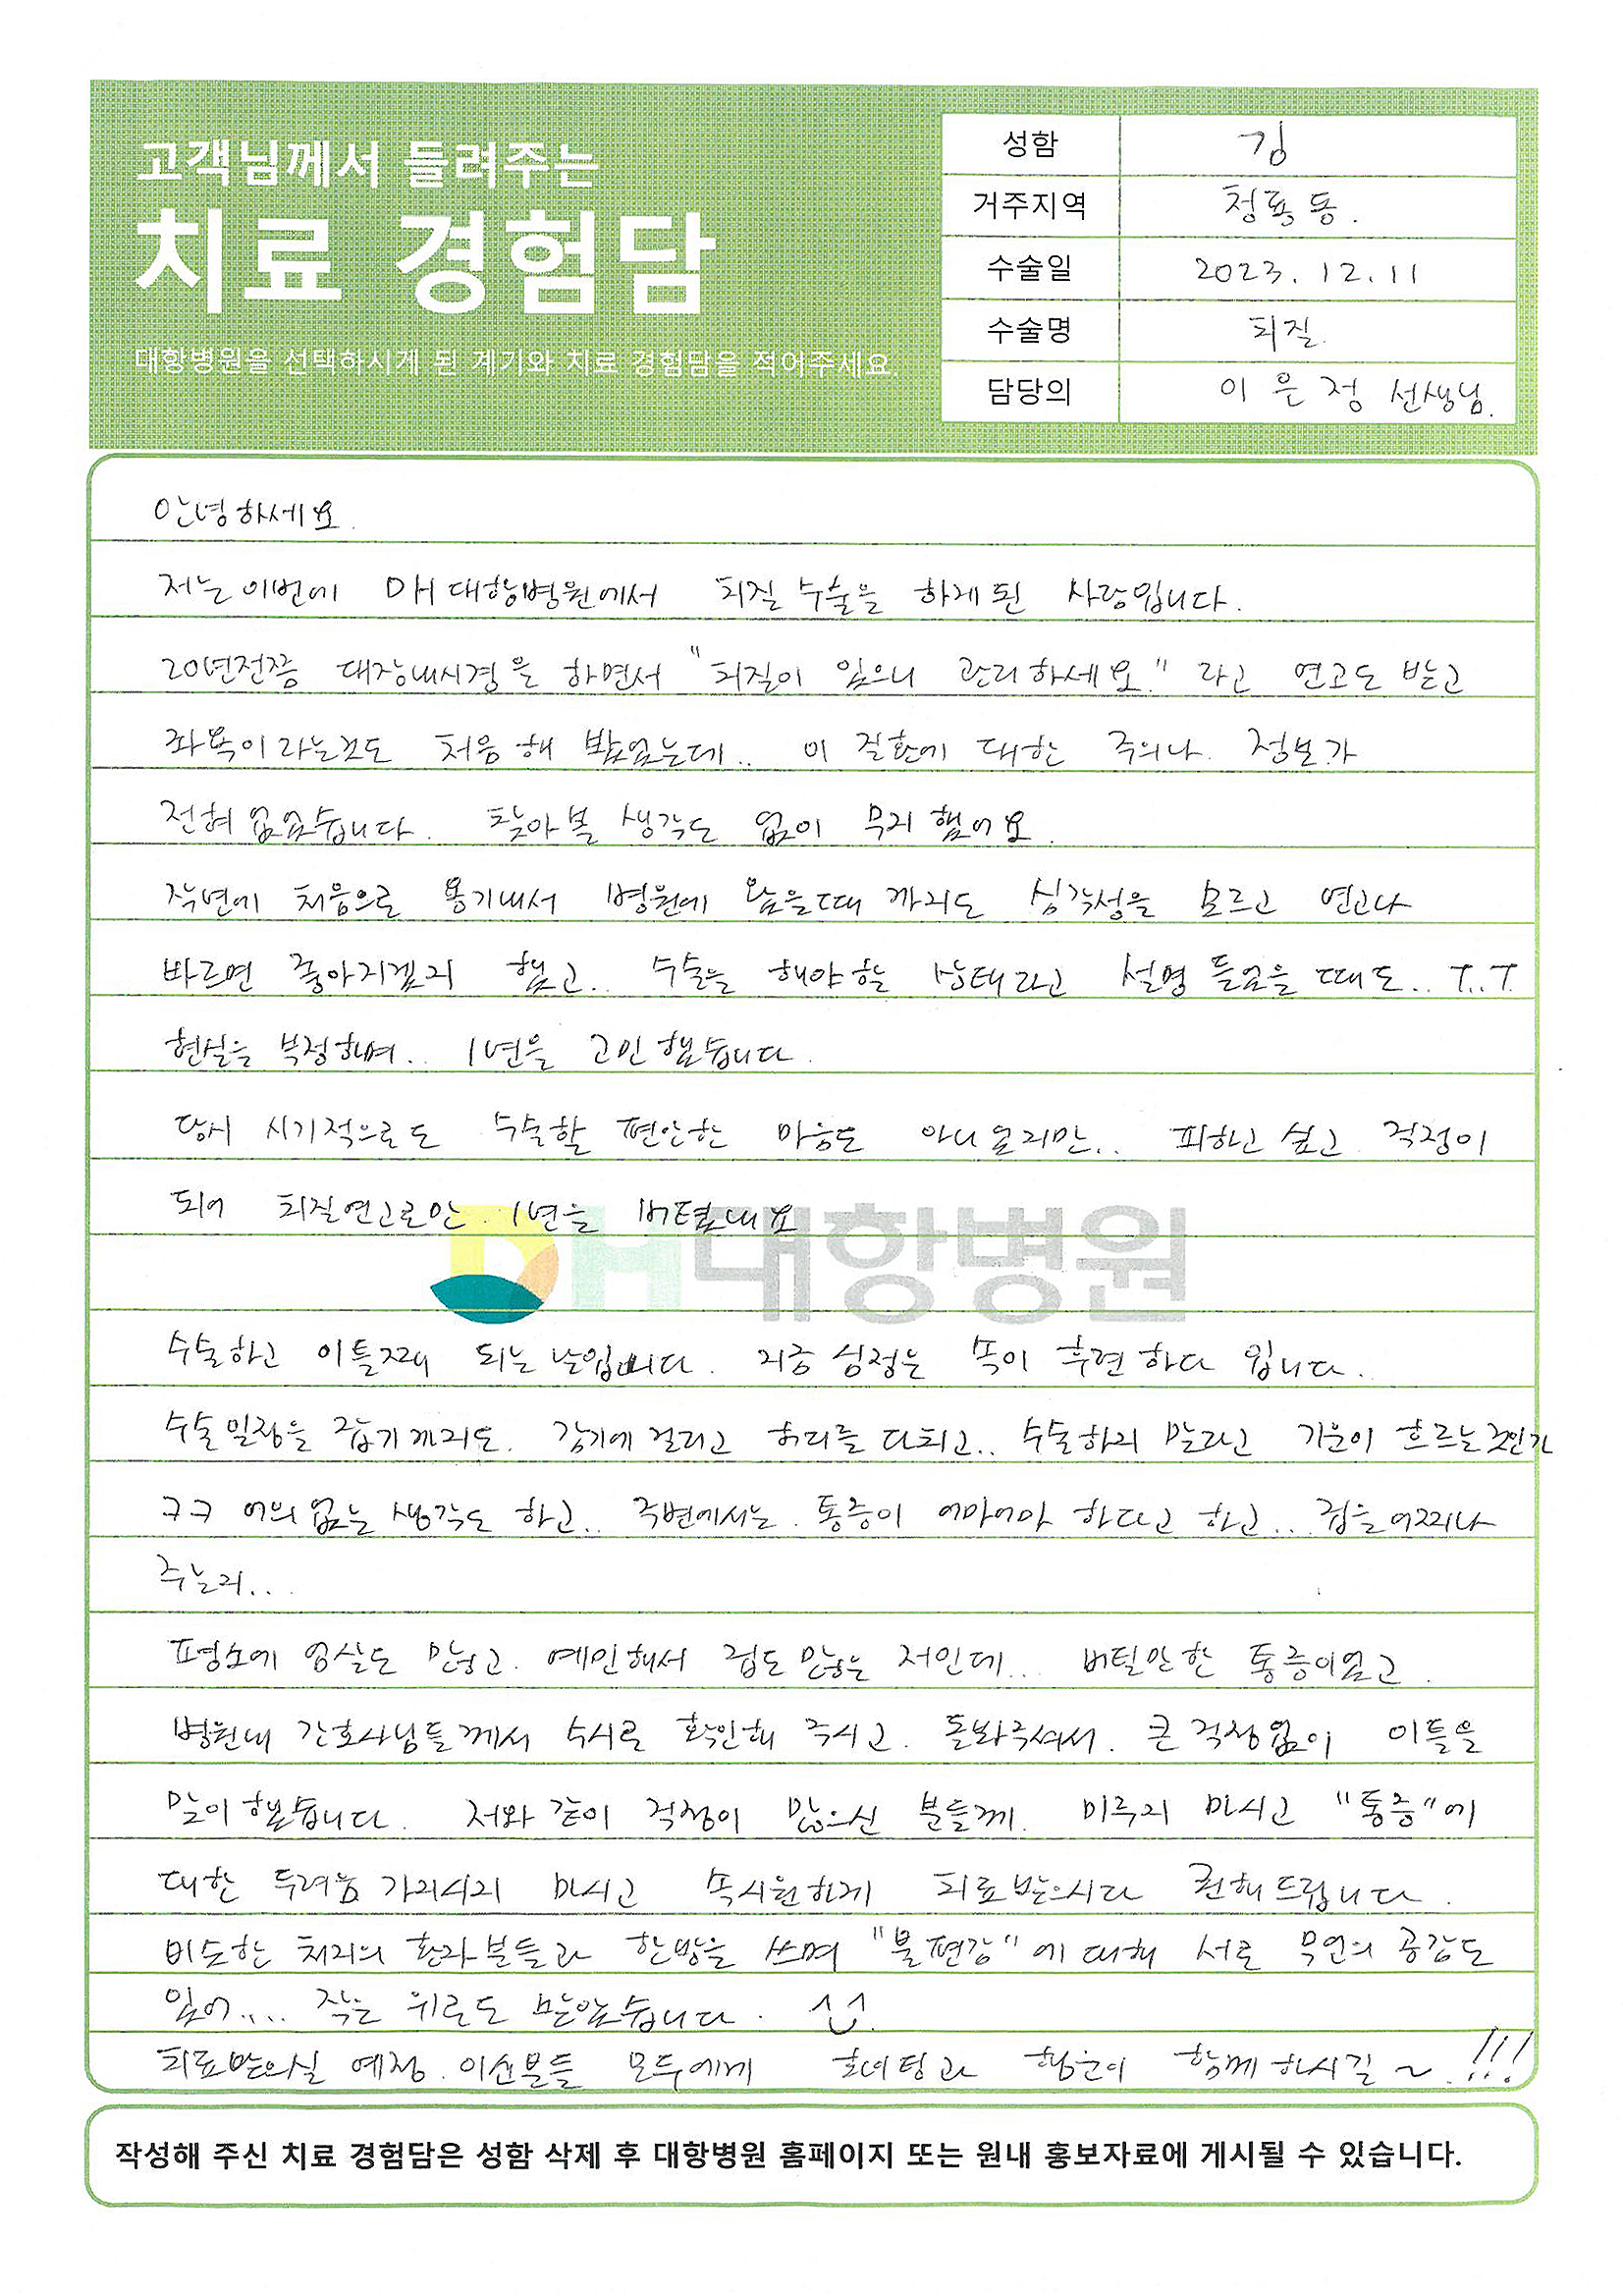 고객님께서 들려주는
치료 경험담
대항병원을 선택하시게 된 계기와 치료 경험담을 적어주세요.
성함 김
거주지역 청룡동.
수술일 2023. 12. 11
수술명 치질.
담당의 이은정 선생님.
안녕하세요.
저는 이번에 DH대항병원에서 치질 수술을 하게된 사람입니다.
20년전쯤 대장내시경을 하면서 "치질이 있으니 관리하세요." 라고 연고도 받고
좌욕이라는것도 처음 해 봤었는데.. 이 질환에 대한 주의나 정보가
전혀 없었습니다. 찾아볼 생각도 없이 무지했어요.
작년에 처음으로 용기내서 병원에 왔을때 까지도 심각성을 모르고 연고나
바르면 좋아지겠지 했고.. 수술을 해야할 상태라고 설명 들었을 때도.. T..T
현실을 부정하며.. 1년을 고민했습니다.
당시 시기적으로도 수술할 편안한 마음도 아니었지만.. 피하고 싶고 걱정이
되어 치질연고로만 1년을 버텼네요
DH대항병원
수술하고 이틀째 되는 날입니다. 지금 심정은 속이 후련하다 입니다.
수술일정을 잡기까지도. 감기에 걸리고 허리를 다치고.. 수술하지 말라고 기운이 흐르는것인가
ㅋㅋ 어의없는 생각도 하고.. 주변에서는 통증이 어마어마 하다고 하고... 겁을 어찌나
주는지...
평소에 엄살도 많고. 예민해서 겁도 많은 저인데... 버틸만한 통증이었고.
병원내 간호사님들께서 수시로 확인해 주시고. 돌봐주셔서. 큰 걱정없이 이틀을
맞이했습니다. 저와 같이 걱정이 많으신 분들께. 미루지 마시고 "통증"에
대한 두려움 가지시지 마시고 속시원하게 치료받으시라 권해드립니다.
비슷한 처지의 환자분들과 한방을 쓰며 "불편감"에 대해 서로 무언의 공감도
있어.... 작은 위로도 받았습니다.
치료받으실 예정 이신분들 모두에게 행운이 함께하시길~ !!!
작성해 주신 치료 경험담은 성함 삭제 후 대항병원 홈페이지 또는 원내 홍보자료에 게시될 수 있습니다.